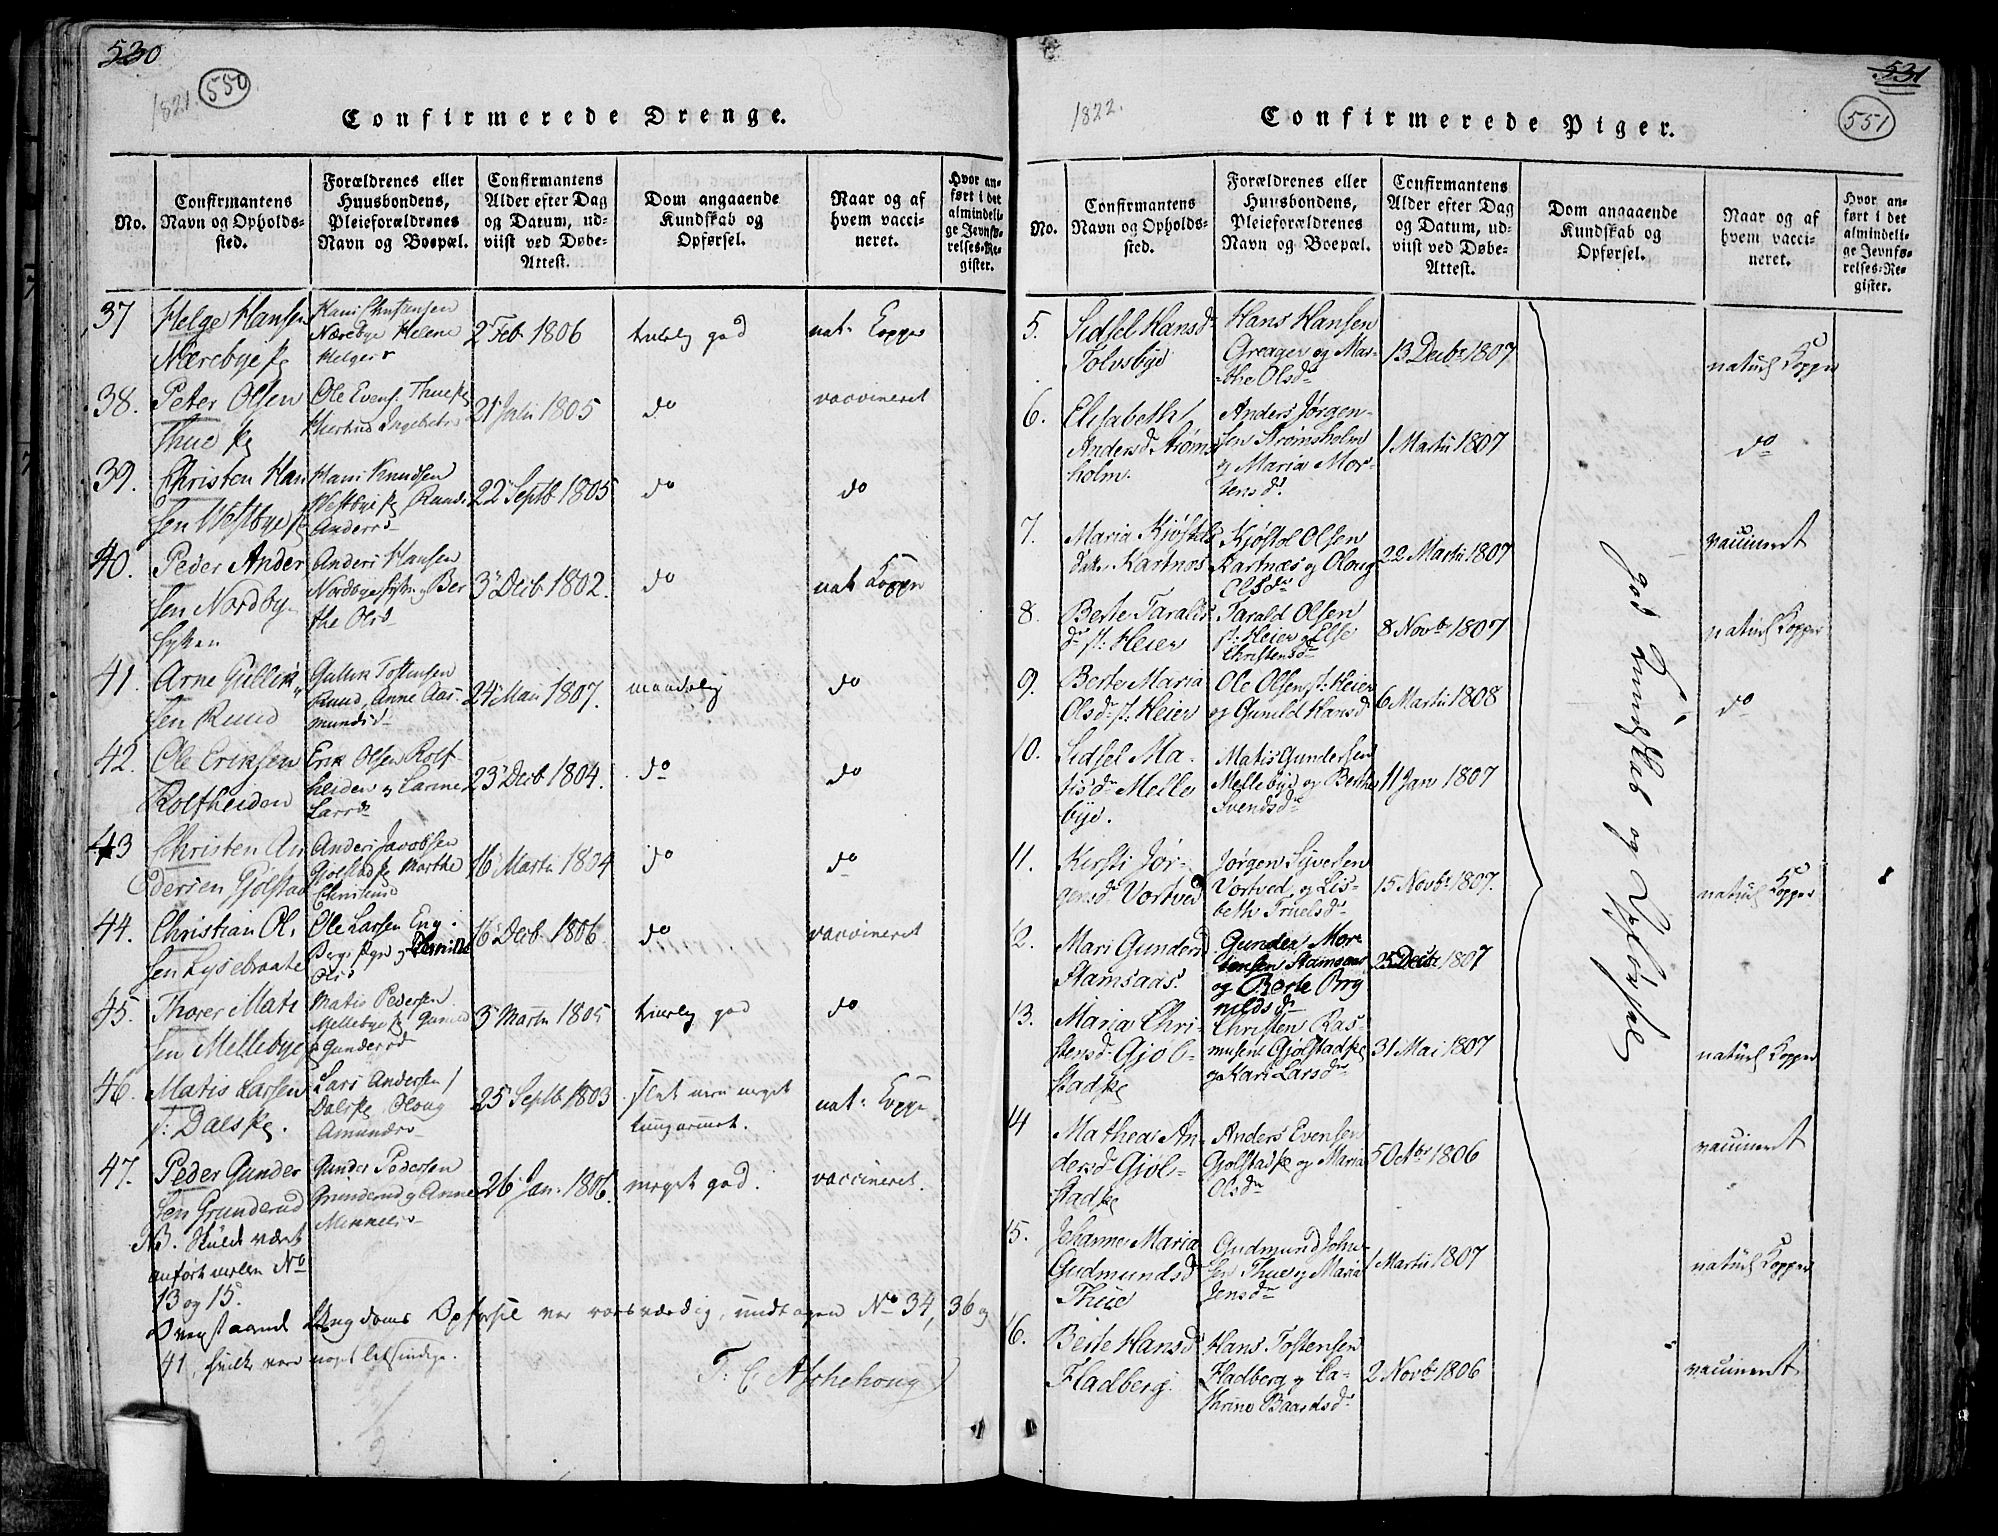 530
550
1821.
Confirmerede Drenge.
No.
Confirmantens
Navn og Opholds-
sted.
Forældrenes eller
Huusbondens,
Pleieforældrenes
Navn og Boepæl.
Confirmantens
Alder efter Dag
og Datum, ud-
viist ved Døbe-
Attest.
Dom angaaende
Kundskab og
Opførsel.
Naar og af
hvem vacci-
neret.
Hvor an-
ført i det
almindeli-
ge Jevnfø-
relses-Re-
gister.
37
Helge Hansen
Nærebye
Hans Christensen
Nærebye Helene
Helges
2 Feb 1806
god
nat: Kopper
38.
Peter Olsen
Thue
Ole Evens. Thue
Ingebrets
21 Juli 1805
do
vaccineret
39.
Christen Han
sen Westbye
Hans Knudsen
Westbye Rand
Anders
22 Septb 1805
do
do
40.
Peder Ander
sen Nordby
Anders Hansen
Ber
the Ols
3 Decb 1802.
do
nat Kopper
41.
Arne Gullik
sen Ruud
Gullik Tostensen
Ruud, Anne Aas-
munds
24 Mai 1807.
maadelig
do
42.
Ole Eriksen
Rolfheiden
Erik Olsen Rolf
heiden
Larsd
23 Decb 1804.
do
do
43
Christen An
dersen Gjølstad
Anders Jacobsen
Gjølstad Marthe
16 Martii 1804
do
do
44.
Christian Ol.
sen Lysebraate
Ole Larsen Eng
Ols
16 Decb 1806.
do
vaccineret
45.
Thorer Mati
sen Mellebye
Matis Pedersen
Mellebye Gunild
Gundersd
3 Martii 1805
god
do
46.
Matis Larsen
Dals
Lars Andersen
Dals Oloug
Amunds
25 Septb 1803
slet men meget
tungnemt.
nat: Kopper
47.
Peder Gunder
sen Grunderud
Gunder Pedersen
Grunderud og Anne
26 Jan: 1806.
meget god.
vaccineret.
NB. skulde været
anført mellem No
13 og 15.
Ovenstaaende Ungdoms Opførsel var roesværdig, undtagen No 34, 36 og
41, hvilke vare noget letsindige.
T: C Aschehoug
531
551
1822.
Confirmerede Piger.
No.
Confirmantens
Navn og Opholds-
sted.
Forældrenes eller
Huusbondens,
Pleieforældrenes
Navn og Boepæl.
Confirmantens
Alder efter Dag
og Datum, ud-
viist ved Døbe-
Attest.
Dom angaaende
Kundskab og
Opførsel.
Naar og af
hvem vacci-
neret.
Hvor an-
ført i det
almindeli-
ge Jevnfø-
relses-Re-
gister.
god Kundskab og Opførsel
5.
Sidsel Hansdr
Tolvsbye
Hans Hansen
Greager og Mar-
the Olsdr
13 Decbr 1807
naturl Kopper
6.
Elisabeth
Andersd Strøms
holm.
Anders Jørgen-
sen Strømsholm
og Maria Mor-
tensd.
1 Martii 1807
do
7.
Maria Kjøstels
datr Kartnos
Kjøstol Olsen
Kartnæs og Oloug
Olsdr
22 Martii 1807
vaccineret
8.
Berte Taralds
dr st: Heier
Tarald Olsen
st: Heier og Else
Christensdr
8 Novbr 1807
naturl Kopper
9.
Berte Maria
Olsdr st: Heier
Ole Olsen st: Heier
og Gunild Hansd
6 Martii 1808
do
10.
Sidsel Ma-
tisdr Melle
bye.
Matis Gundersen
Mellebye og Berthe
Svendsdr
11 Jan 1807
11.
Kersti Jør-
gensdr Vortved
Jørgen Syversen
Vortved, og Lis-
beth Truelsdr
15 Novbr 1807.
naturl Kopper
12.
Mari Gundersd
Stamsaas.
Gunder Mor-
tensen Stamsaas
og Berte Bryn
nildsdr
25 Decbr 1807
13.
Maria Chri-
stensdr Gjøl-
stad
Christen Ras-
musens Gjølstad
og Kari Larsdr
31 Mai 1807
naturl Kopper
14
Mathea An-
dersdr Gjøl-
stad
Anders Evensen
Gjølstad og Maria
Olsdr
5 Octbr 1806
vaccineret
15.
Johanne Maria
Gudmundsd
Thue
Gudmund John-
sen Thue og Maria
Jensdr
1 Martii 1807
naturl Kopper
16.
Berte Hansd
Fladberg.
Hans Tostensen
Fladberg og Ca-
thrine Baardsdr
2 Novbr 1806
vaccineret